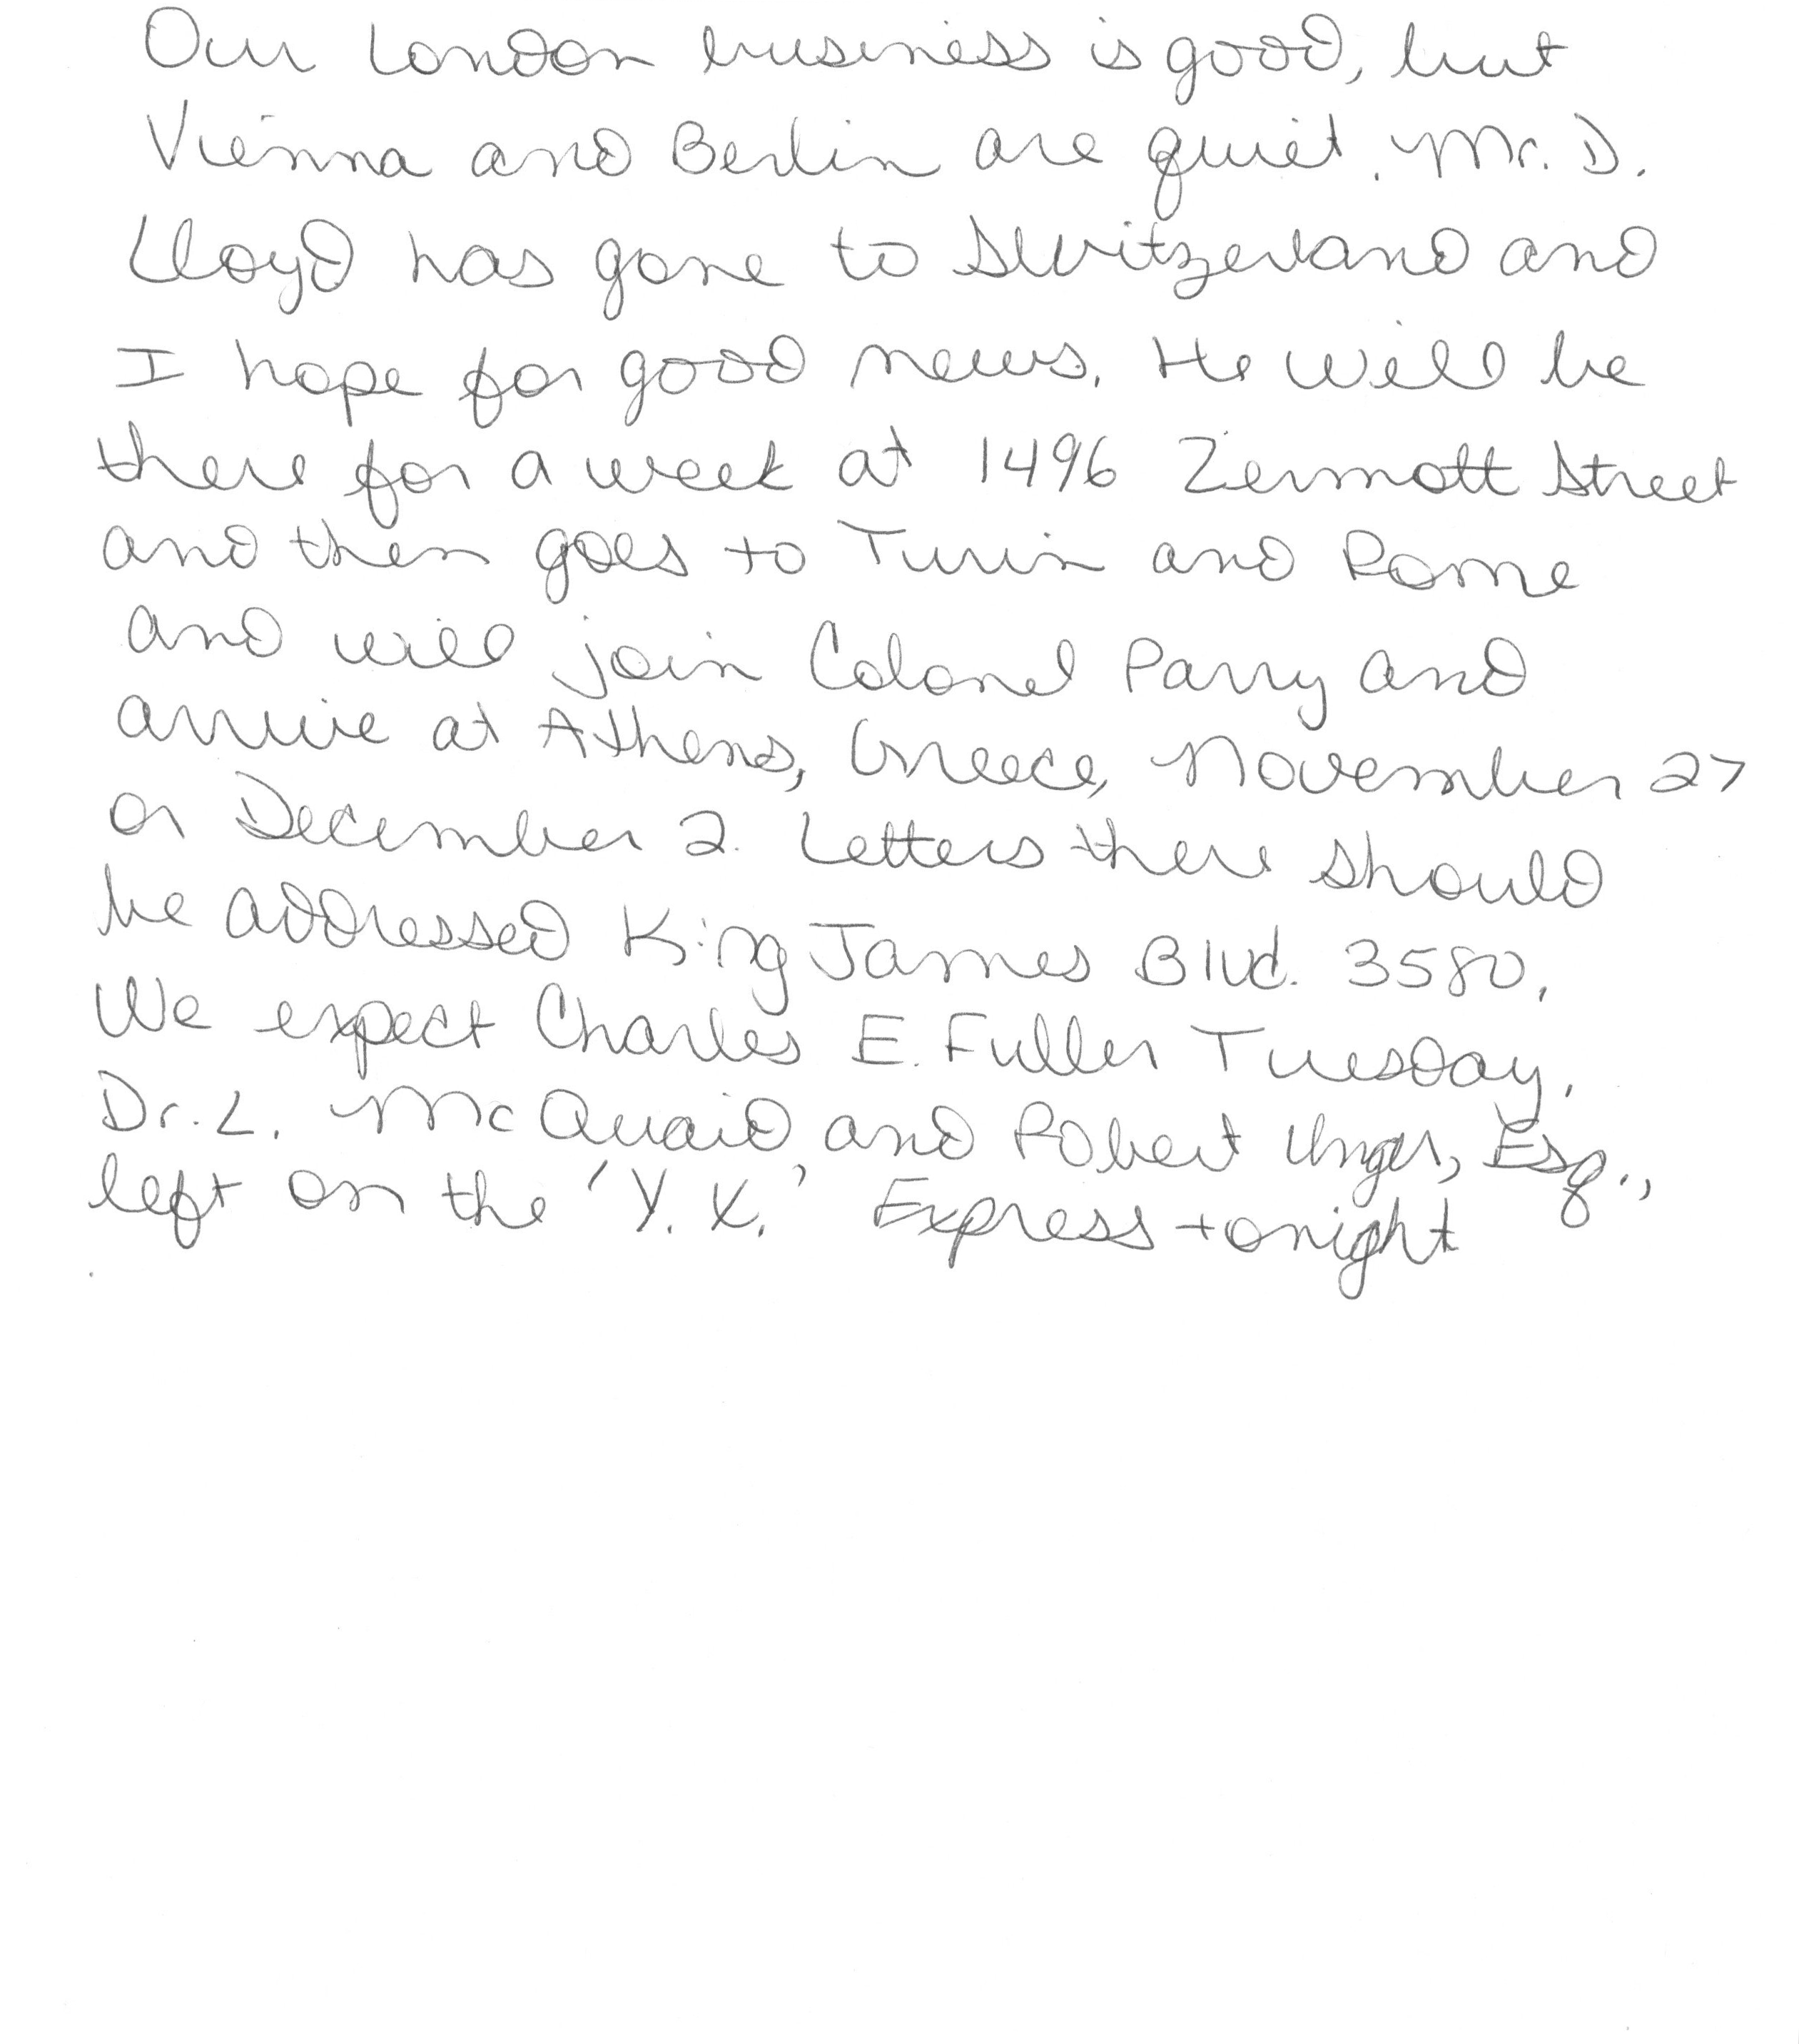 Our London business is good, but
Vienna and Berlin are quiet. Mr. D.
Lloyd has gone to Switzerland and
I hope for good news. He will be
there for a week at 1496 Zermott Street
and then goes to Turin and Rome
and will join Colonel Parry and
arrive at Athens, Greece, November 27
or December 2. Letters there should
be addressed King James Blvd. 3580.
We expect Charles E. Fuller Tuesday.
Dr. L. McQuaid and Robert Unger, Esq.,
left on the 'Y. X.' Express tonight